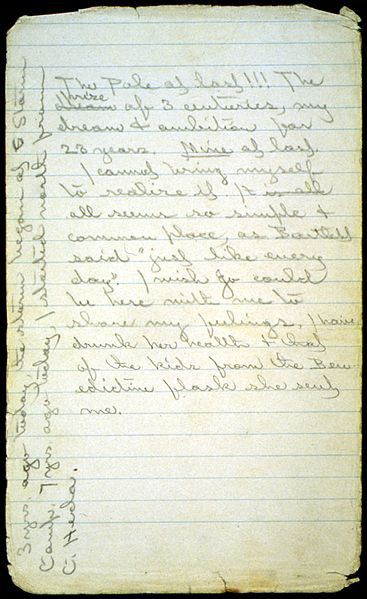 The Pole at last!!! The
prize
dream of 3 centuries, my
dream & ambition for
23 years. Mine at last.
I cannot bring myself
to realize it. It is all
all seems so simple &
common place, as Bartlett
said "just like every
day." I wish Jo could
be here with me to
share my feelings. I have
drunk her health & that
of the kids from the Ben-
edictine flask she sent
me.
3 yrs ago today the storm began at Storm
Camp. 7 yrs ago today, I started north from
C. Hecla.